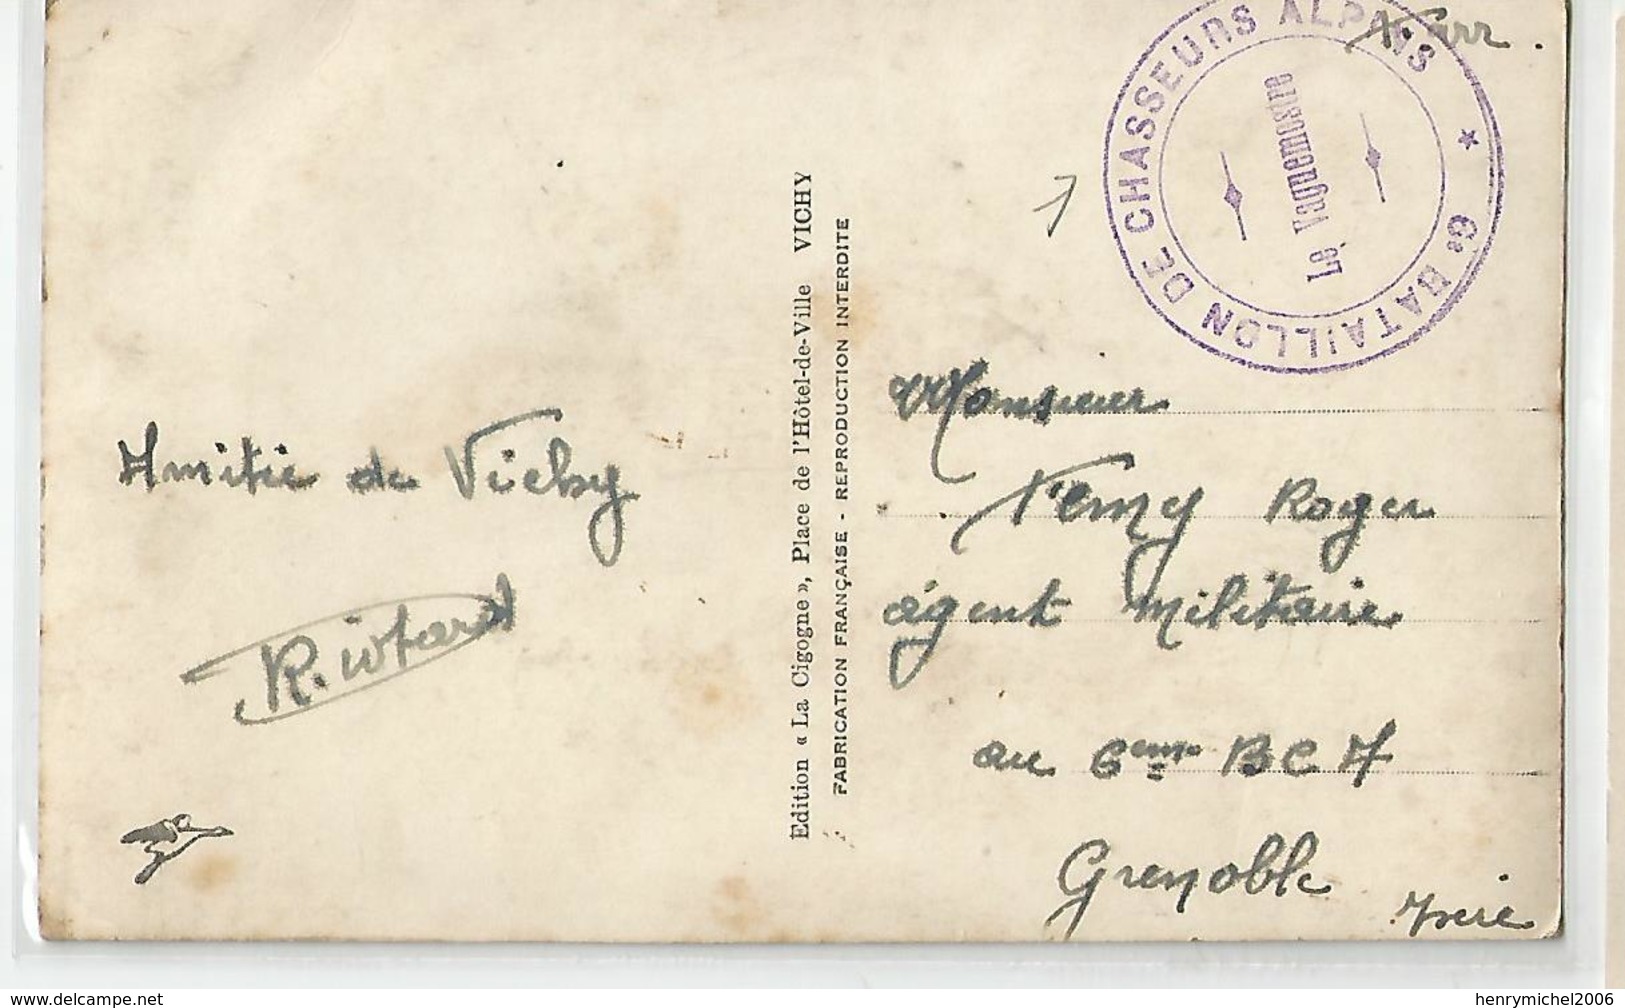 6e BATAILLON DE CHASSEURS ALPINS *
Le Vaguemestre
Amitié de Vichy
Edition « La Cigogne », Place de l'Hôtel-de-Ville VICHY
FABRICATION FRANÇAISE - REPRODUCTION INTERDITE
Monsieur
Remy Roger
agent militaire
au 6eme BCA
Grenoble
Isère
www.delcampe.net
henrymichel2006